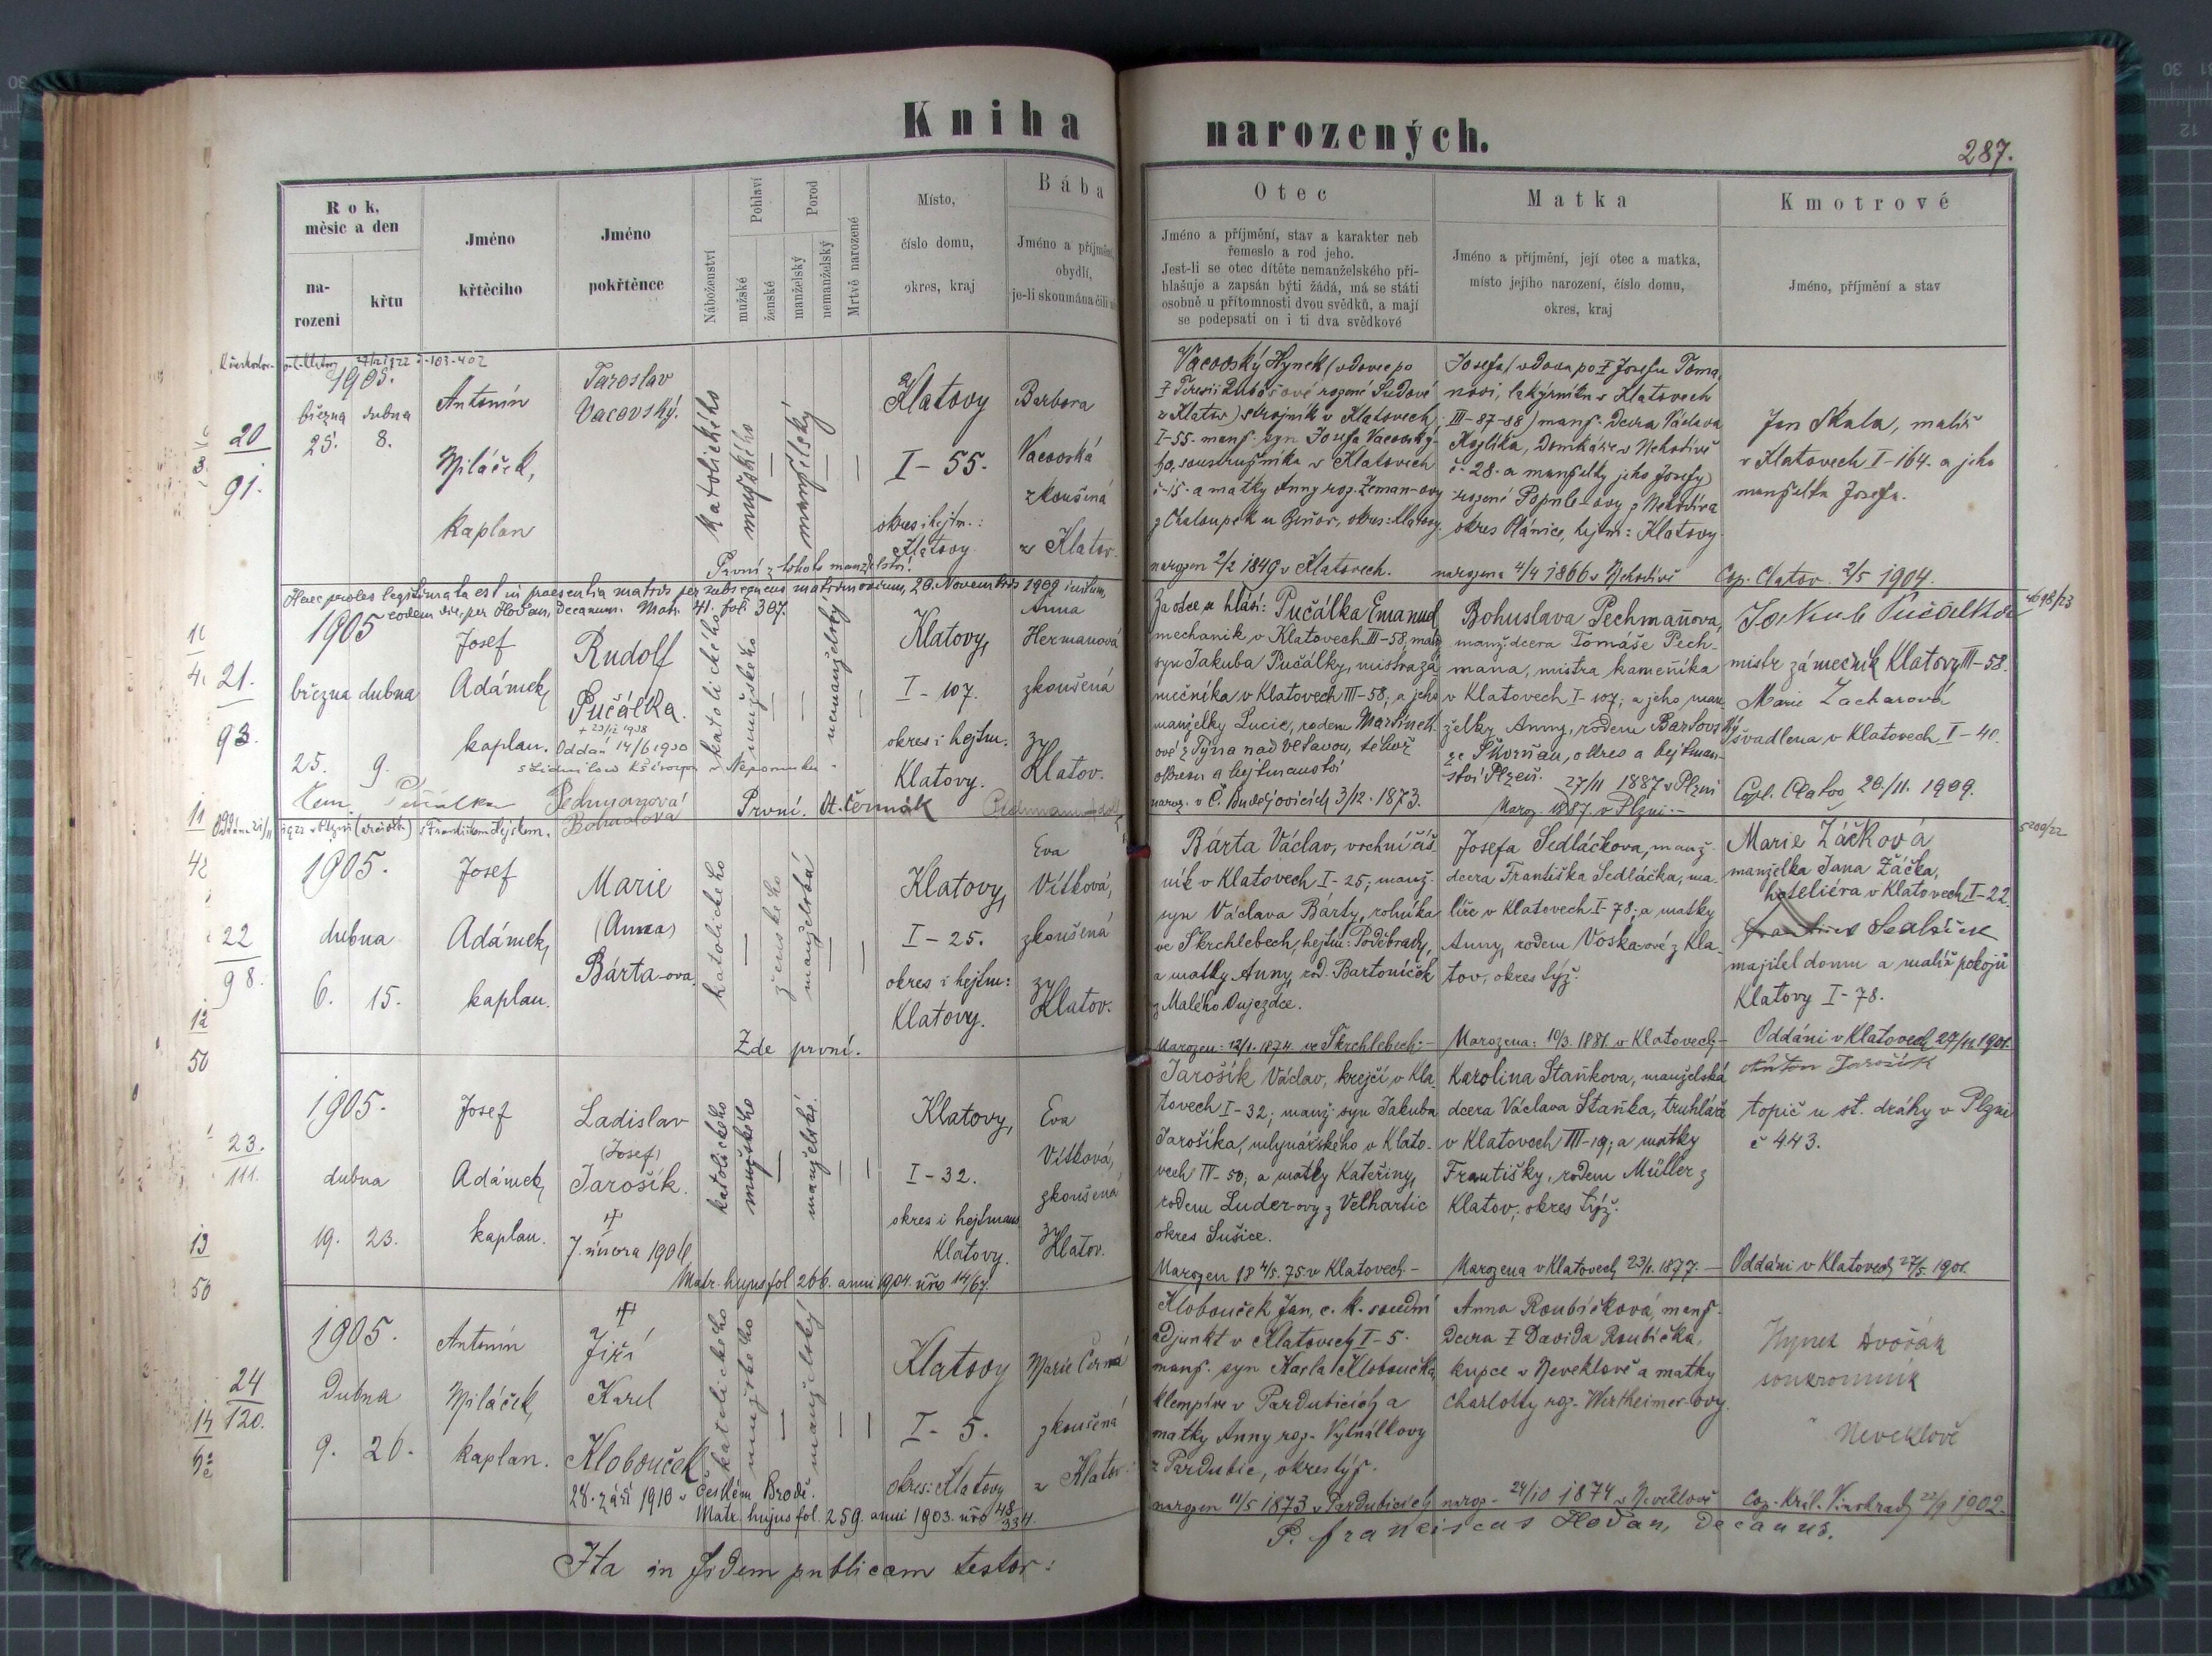 Kniha narozených.
287.
Rok, měsíc a den
narození
křtu
Jméno křtěcího
Jméno pokřtěnce
Náboženství
Pohlaví
mužské
ženské
Porod
manželský
nemanželský
Mrtvě narozené
Místo,
číslo domu,
okres, kraj
Bába
Jméno a příjmení,
obydlí,
je-li skoumána čili
Otec
Jméno a příjmení, stav a karakter neb
řemeslo a rod jeho.
Jest-li se otec dítěte nemanželského při-
hlašuje a zapsán býti žádá, má se státi
osobně u přítomnosti dvou svědků, a mají
se podepsati on i ti dva svědkové
Matka
Jméno a příjmení, její otec a matka,
místo jejího narození, číslo domu,
okres, kraj
Kmotrové
Jméno, příjmení a stav
20
91.
1905.
března dubna
25. 8.
Antonín
Miláček,
kaplan
Jaroslav
Vacovský.
katolického
mužského
manželský
Klatovy
I-55.
okres i hejtm.:
Klatovy
Barbora
Vacovská
zkoušená
z Klatov.
První z tohoto manželství.
Vacovský Hynek (vdovec po
z Klatov) strojník v Klatovech
I-55. manž. syn Josefa Vacovské-
ho, soustružníka v Klatovech
a matky Anny roz. Zeman-ovy
z Chaloupek u Běšin, okres: Klatovy
narozen 2/2 1849 v Klatovech.
Josefa, vdova po Josefu Toma
novi, lakýrníku v Klatovech
III-87-88) manž. dcera Václava
domkáře v Nehodivě
č. 28. a manželky jeho Josefy
z Nehodiva
okres Plánice, hejtm: Klatovy.
narozena 4/4 1866 v Nehodivě
Jan Skala, malíř
v Klatovech I-164. a jeho
manželka Josefa.
Cop. Clatov. 2/5 1904.
Haec proles legitimata est in praesentia matris per subsequens matrimonium, 20. Novembris 1909 initum,
eodem die, per Hoďan, Decanum. Matr. 41. fol. 307.
21.
93.
1905
března dubna
25. 9.
Josef
Adámek,
kaplan.
Rudolf
Pučálka.
Oddán 14/6 1930
katolického
mužského
nemanželský
Klatovy,
I-107.
okres i hejtm.
Klatovy.
Anna
Hermanová
zkoušená
z Klatov.
První.
Za otce se hlásí: Pučálka Emanuel
mechanik v Klatovech III-58, manž.
syn Jakuba Pučálky, mistra zá-
mečníka v Klatovech III-58; a jeho
manželky Lucie, rodem Martínek-
ové z Týna nad Vltavou, téhož
okresu a hejtmanství
naroz. v Č. Budějovicích 3/12. 1873.
Bohuslava Pechmanova,
manž. dcera Tomáše Pech-
mana, mistra kameníka
v Klatovech I-107; a jeho man-
želky Anny, rodem Bartovský
ze Skvrňan, okres a hejtman-
ství Plzeň. 27/11 1887 v Plzni
Naroz. 1887. v Plzni.
Jakub Pučálka
mistr zámečník Klatovy III-58.
Marie Zacharová
švadlena v Klatovech I-40.
Cop. Clatov 20./11. 1909.
4698/23
22
98.
1905.
dubna
6. 15.
Josef
Adámek,
kaplan.
Marie
(Anna)
Bárta-ova.
katolického
ženského
manželská
Klatovy,
I-25.
okres i hejtm:
Klatovy.
Eva
Vítková,
zkoušená
z Klatov.
Zde první.
Bárta Václav, vrchní číš
ník v Klatovech I-25; manž.
syn Václava Bárty, rolníka
ve Skrchlebech, hejtm: Poděbrady,
a matky Anny, rod. Bartoníček
z Malého Oujezdce.
Narozen: 12/1. 1874 ve Skrchlebech.
Josefa Sedláčkova, manž.
dcera Františka Sedláčka, ma-
líře v Klatovech I-78; a matky
Anny, rodem Voska-ové z Kla-
tov, okres týž.
Narozena: 10/3. 1881 v Klatovech
Marie Žáčková
manželka Jana Žáčka,
hoteliéra v Klatovech I-22.
majitel domu a malíř pokojů
Klatovy I-78.
Oddáni v Klatovech
5200/22
23.
111.
1905.
dubna
19. 23.
Josef
Adámek,
kaplan.
Ladislav
(Josef)
Jarošík.
7. února 1906
katolického
mužského
manželské.
Klatovy,
I-32.
okres i hejtmans
Klatovy.
Eva
Vítková,
zkoušená
z Klatov.
Matr. hujus fol 266. anni 1904. nro 14/67.
Jarošík Václav, krejčí v Kla
tovech I-32; manž. syn Jakuba
Jarošíka, mlynářského v Klato-
vech IV-50; a matky Kateřiny,
rodem Luder-ovy z Velhartic
okres Sušice.
Narozen 18 4/5. 75 v Klatovech
Karolina Staňkova, manželská
dcera Václava Staňka, truhláře
v Klatovech III-19; a matky
Františky, rodem Müller z
Klatov, okres týž.
Narozena v Klatovech 23/1. 1877.
Anton Jarošík
topič u st. dráhy v Plzni
č 443.
Oddáni v Klatovech 27/5. 1901.
24
120.
1905.
Dubna
9. 26.
Antonín
Miláček,
kaplan.
Jiří
Karel
Klobouček
28. září 1910 v Českém Brodě.
katolického
mužského
manželský
Klatovy
I-5.
okres: Klatovy
Marie Černá
zkoušená
z Klatov.
Matr. hujus fol. 259. anni 1903. nro 48/334.
Klobouček Jan, c. k. soudní
adjunkt v Klatovech I-5.
manž. syn Karla Kloboučka,
klempíře v Pardubicích a
matky Anny roz. Vytnálkovy
z Pardubic, okres týž.
narozen 11/5 1873 v Pardubicích
Anna Roubíčková, manž.
dcera Davida Roubíčka,
kupce v Neveklově a matky
Charlotty roz. Wertheimer-ovy.
naroz. 24/10 1874 v Neveklově
Hynek Dvořák
soukromník
Neveklově
Cop. Král. Vinohrady 1902.
Ita in fidem publicam testor:
P. Franciscus Hoďan, Decanus.